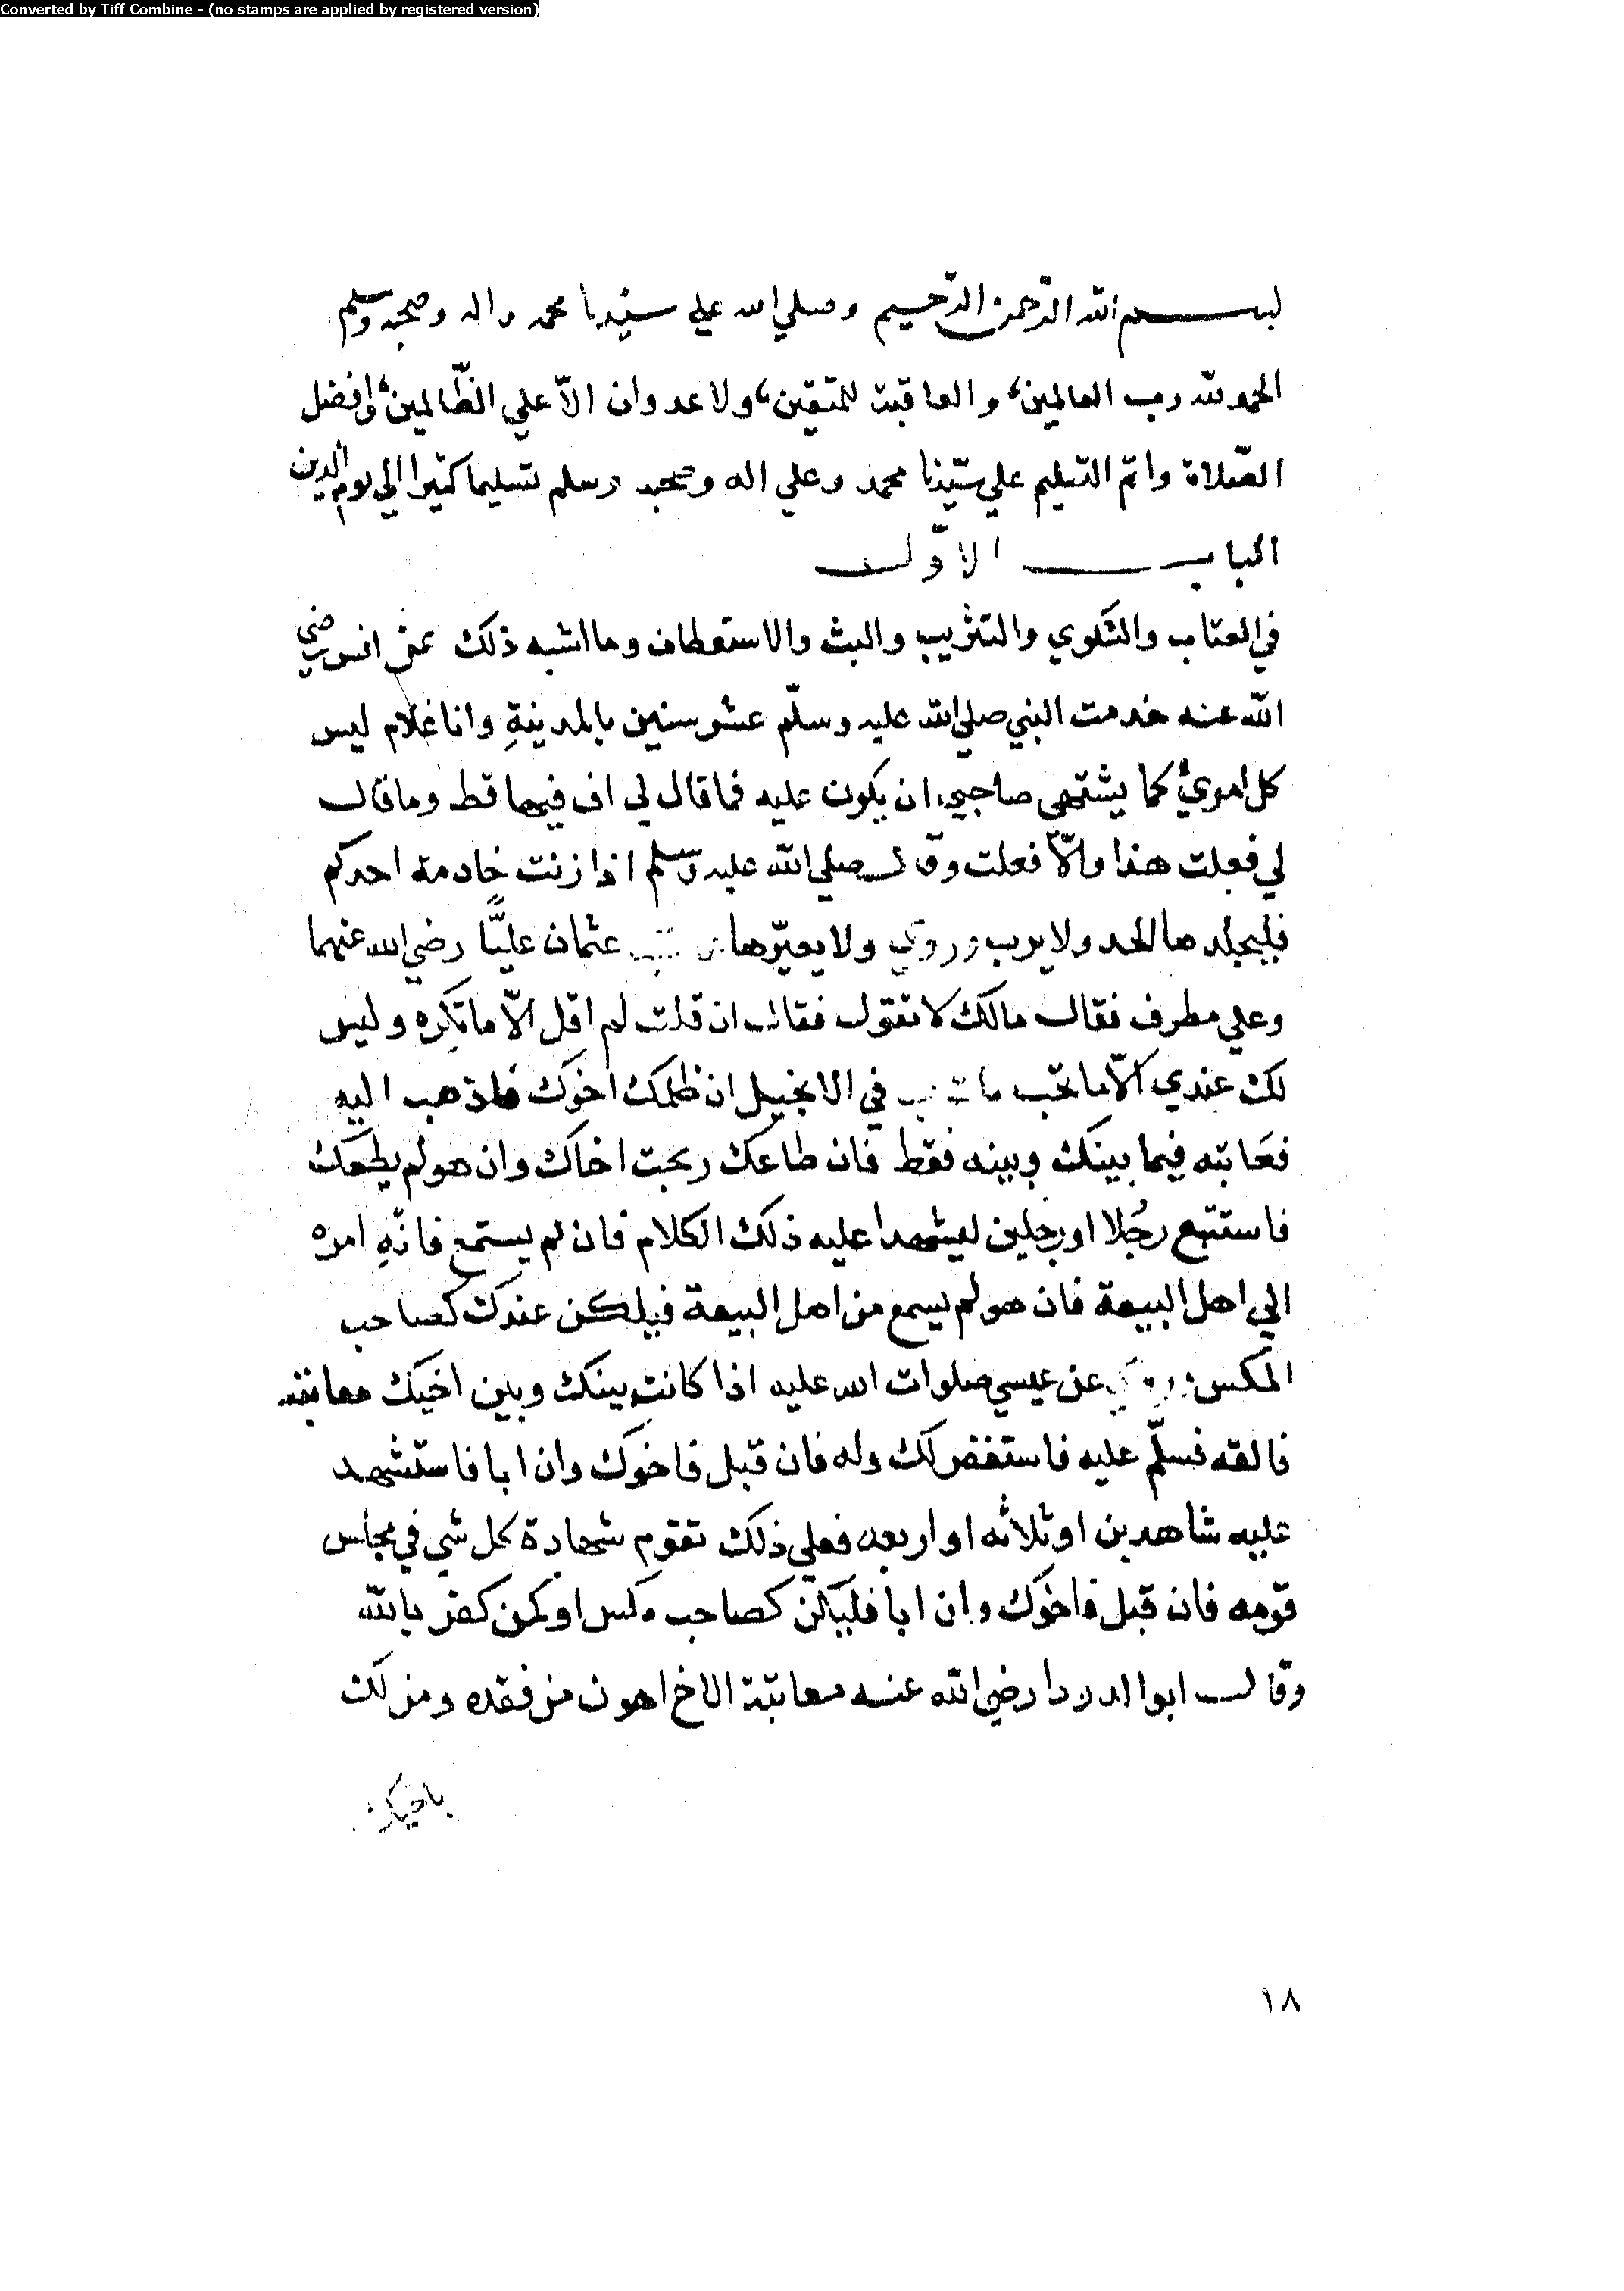 Converted by Tiff Combine - (no stamps are applied by registered version)
بسم الله الرّحمن الرّحيم وصلي الله علي سيّدنا محمد واله وصحبه وسلم
الحمد لله رب العالمين، والعاقبة للمتقين، ولا عدوان الّا علي الظّالمين، وافضل
الصّلاة واتمّ التسليم علي سيّدنا محمد وعلي اله وصحبه وسلم تسليما كثيرا الي يوم الدين
الباب الاوّل
في العتاب والشكوي والتثريب والبث والاستعطاف وما اشبه ذلك عن انس رضي
الله عنه خدمت النبي صلي الله عليه وسلّم عشر سنين بالمدينةِ وانا غلام ليس
كل امري كما يشتهي صاحبي ان يكون عليه فما قال لي اف فيها قط وما قال
لي فعلت هذا والّا فعلت وقال صلي الله عليه وسلم اذا زنت خادمة احدكم
فليجلدها الحد ولا يرب وروي ولا يعيّرها عثمان عليًّا رضي الله عنهما
وعلي مطرف فقال مالك لا تقول فقال ان قلت لم اقل الّا ما تكره وليس
لك عندي الّا ما تحب في الانجيل ان ظلمك اخوك فاذهب اليه
فعَاتبه فيما بينك وبينه فقط فان طاعك ربحت اخاك وان هو لم يطعك
فاستتبع رجُلا او رجلين ليشهدا عليه ذلك الكلام فان لم يستمع فانّهِ امره
الي اهل البيعة فان هو لم يسمع من اهل البيعة فيلكن عندك كصاحب
المكس وروي عن عيسي صلوات الله عليه اذا كانت بينك وبين اخيك معاتبة
فالقه فسلّم عليه فاستغفر لك وله فان قبل فاخوك وان ابا فاستشهد
عليه شاهدين او ثلاثه او اربعه فعلي ذلك تقوم شهادة كل شي في مجلس
قومه فان قبل فاخوك وان ابا فليكن كصاحب مكس او كمن كفر بالله
وقال ابو الدردا رضي الله عنه معاتبة الاخ اهون من فقده ومن لك
باخيك
١٨